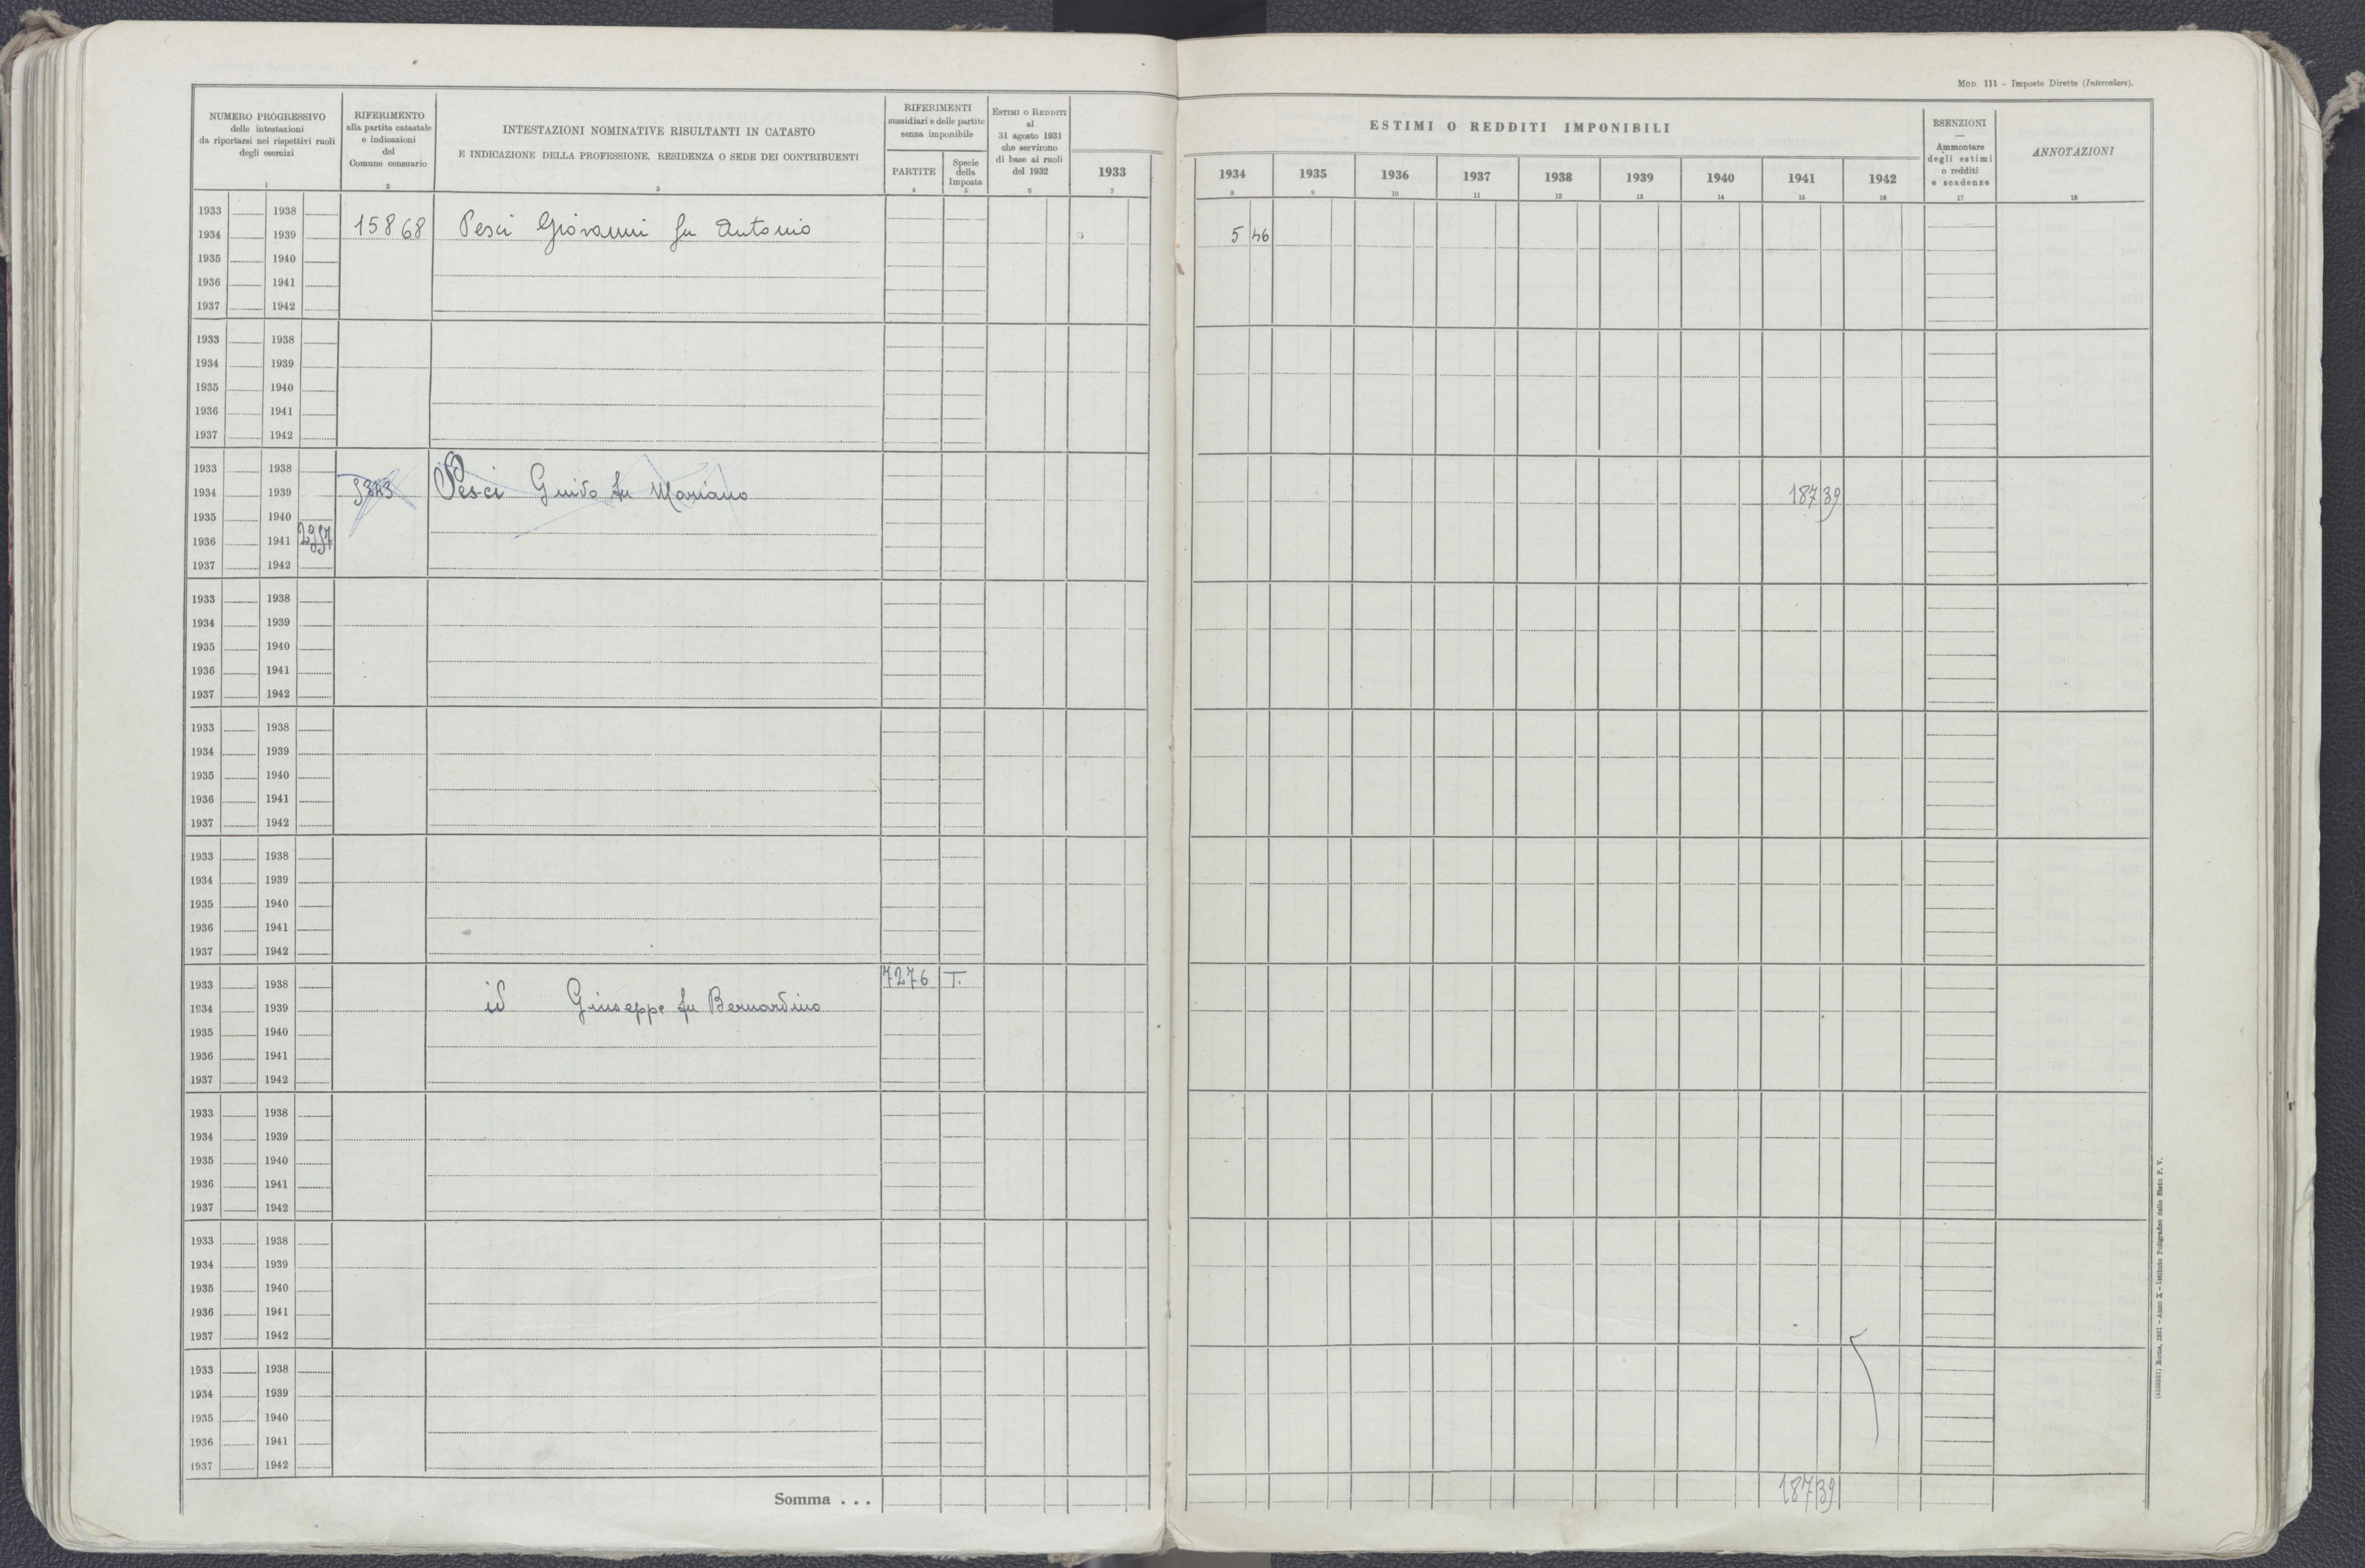 Mod. 111 - Imposte Dirette (Intercalare).
NUMERO PROGRESSIVO
delle intestazioni
da riportarsi nei rispettivi ruoli
degli esercizi
1
RIFERIMENTO
alla partita catastale
e indicazioni
del
Comune censuario
2
INTESTAZIONI NOMINATIVE RISULTANTI IN CATASTO
E INDICAZIONE DELLA PROFESSIONE, RESIDENZA O SEDE DEI CONTRIBUENTI
3
RIFERIMENTI
sussidiari e delle partite
senza imponibile
PARTITE
4
Specie
della
Imposta
5
Estimi o Redditi
al
31 agosto 1931
che servirono
di base ai ruoli
del 1932
6
1933
7
ESTIMI O REDDITI IMPONIBILI
1934 1935 1936 1937 1938 1939 1940 1941 1942
8 9 10 11 12 13 14 15 16
ESENZIONI
—
Ammontare
degli estimi
o redditi
e scadenze
17
ANNOTAZIONI
18
1933 1938
1934 1939 15868 Pesci Giovanni fu Antonio 5 46
1935 1940
1936 1941
1937 1942
1933 1938
1934 1939
1935 1940
1936 1941
1937 1942
1933 1938
1934 1939 Pesci Guido fu Mariano 187 39
1935 1940
1936 1941
1937 1942
1933 1938
1934 1939
1935 1940
1936 1941
1937 1942
1933 1938
1934 1939
1935 1940
1936 1941
1937 1942
1933 1938
1934 1939
1935 1940
1936 1941
1937 1942
1933 1938 7276 T.
1934 1939 id Giuseppe fu Bernardino
1935 1940
1936 1941
1937 1942
1933 1938
1934 1939
1935 1940
1936 1941
1937 1942
1933 1938
1934 1939
1935 1940
1936 1941
1937 1942
1933 1938
1934 1939
1935 1940
1936 1941
1937 1942
Somma . . . 187 39
(4100551) Roma, 1931 - Anno X - Istituto Poligrafico dello Stato P. V.